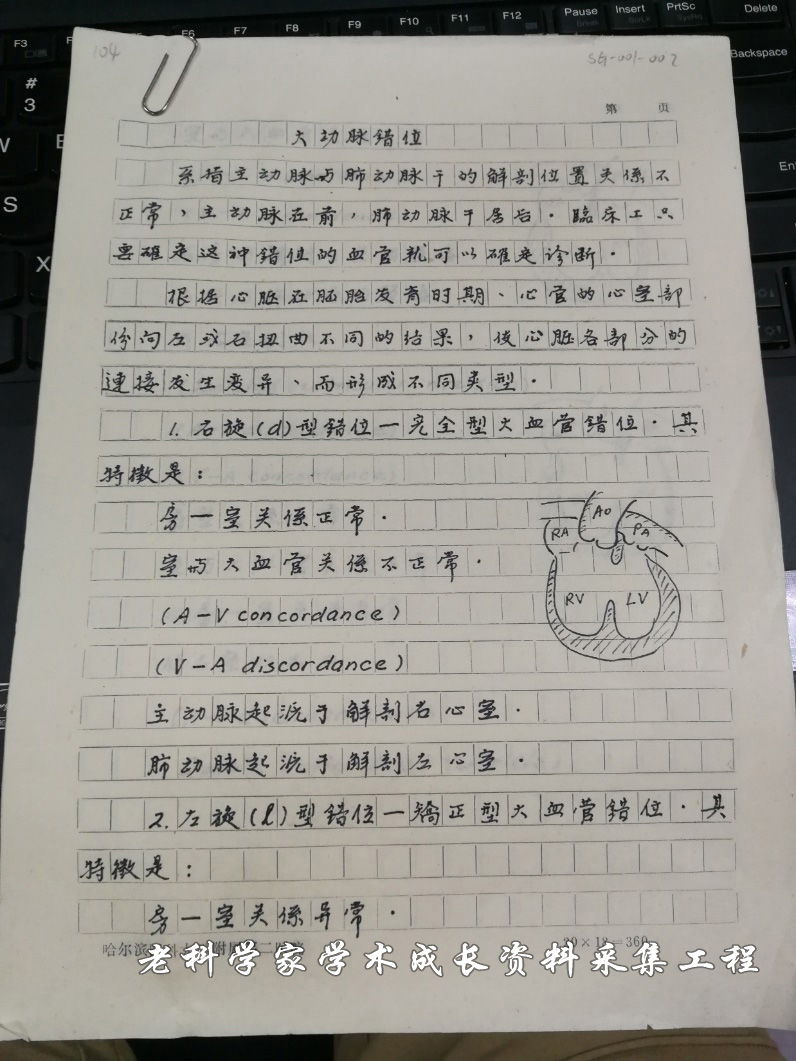 104
SG-001-002
第 页
大动脉错位
系指主动脉与肺动脉干的解剖位置关係不
正常，主动脉在前，肺动脉干居后．臨床上只
要確定这种错位的血管就可以確定诊断．
根据心脏在胚胎发育时期、心管的心室部
份向左或右扭曲不同的结果，使心脏各部分的
連接发生变异、而形成不同类型．
1. 右旋(d)型错位一完全型大血管错位．其
特徵是：
房一室关係正常．
室与大血管关係不正常．
(A-V concordance)
(V-A discordance)
主动脉起源于解剖右心室．
肺动脉起源于解剖左心室．
RA Ao PA
RV LV
2. 左旋(l)型错位一矯正型大血管错位．其
特徵是：
房一室关係异常．
哈尔滨 20×18=360
老科学家学术成长资料采集工程
F3
F6
F7
F8
F9
F10
F11
F12
Pause
Break
Insert
PrtSc
SysRq
Delete
#
3
Backspace
W
S
X